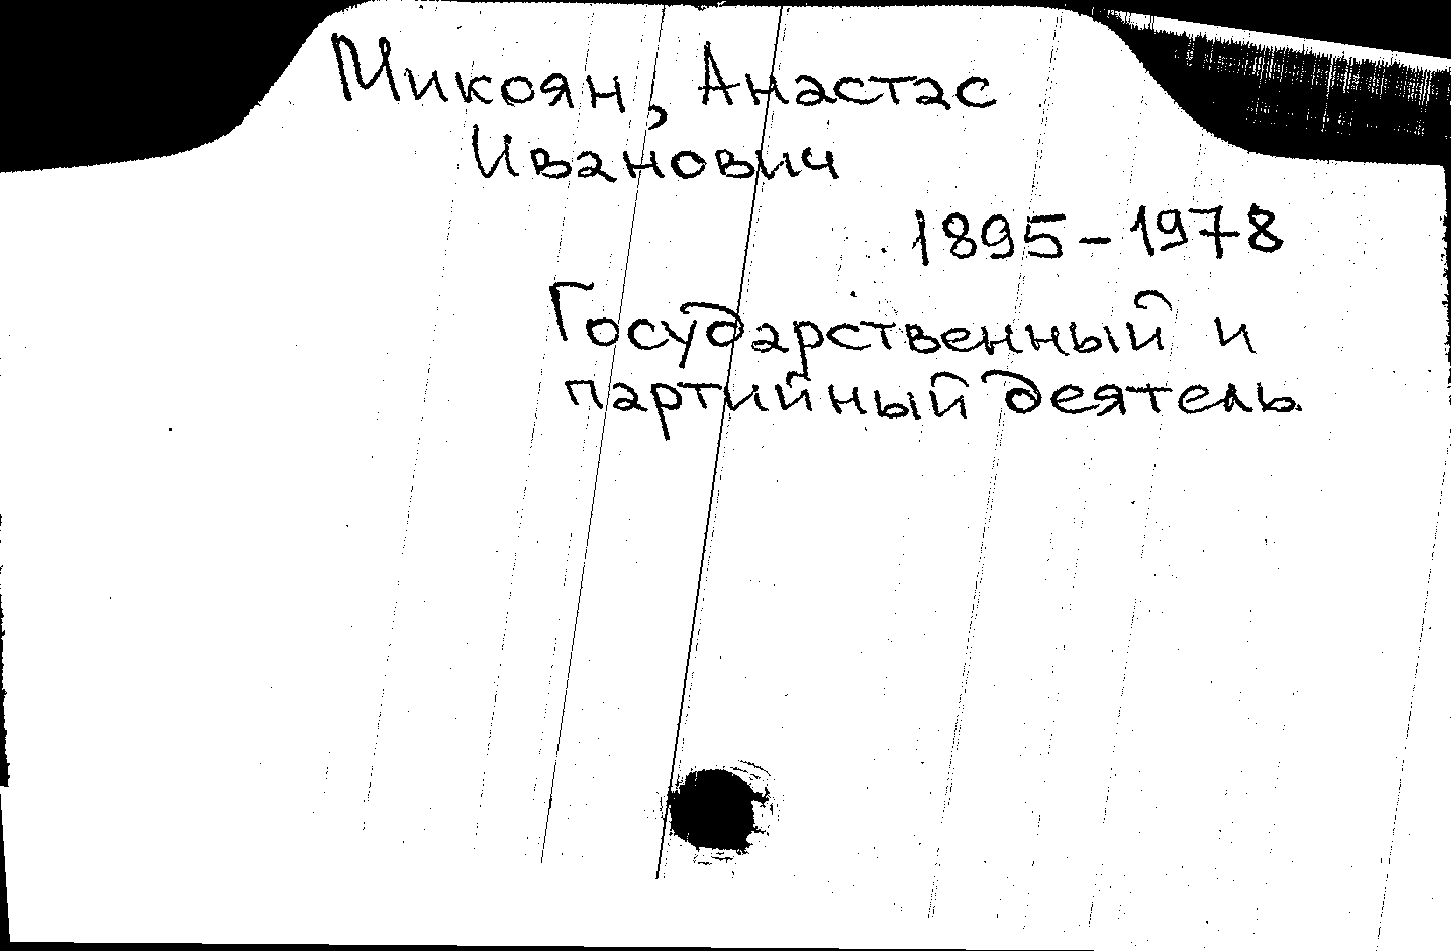 Микоян, Анастас
Иванович
1895-1978
Государственный и
партийный деятель.